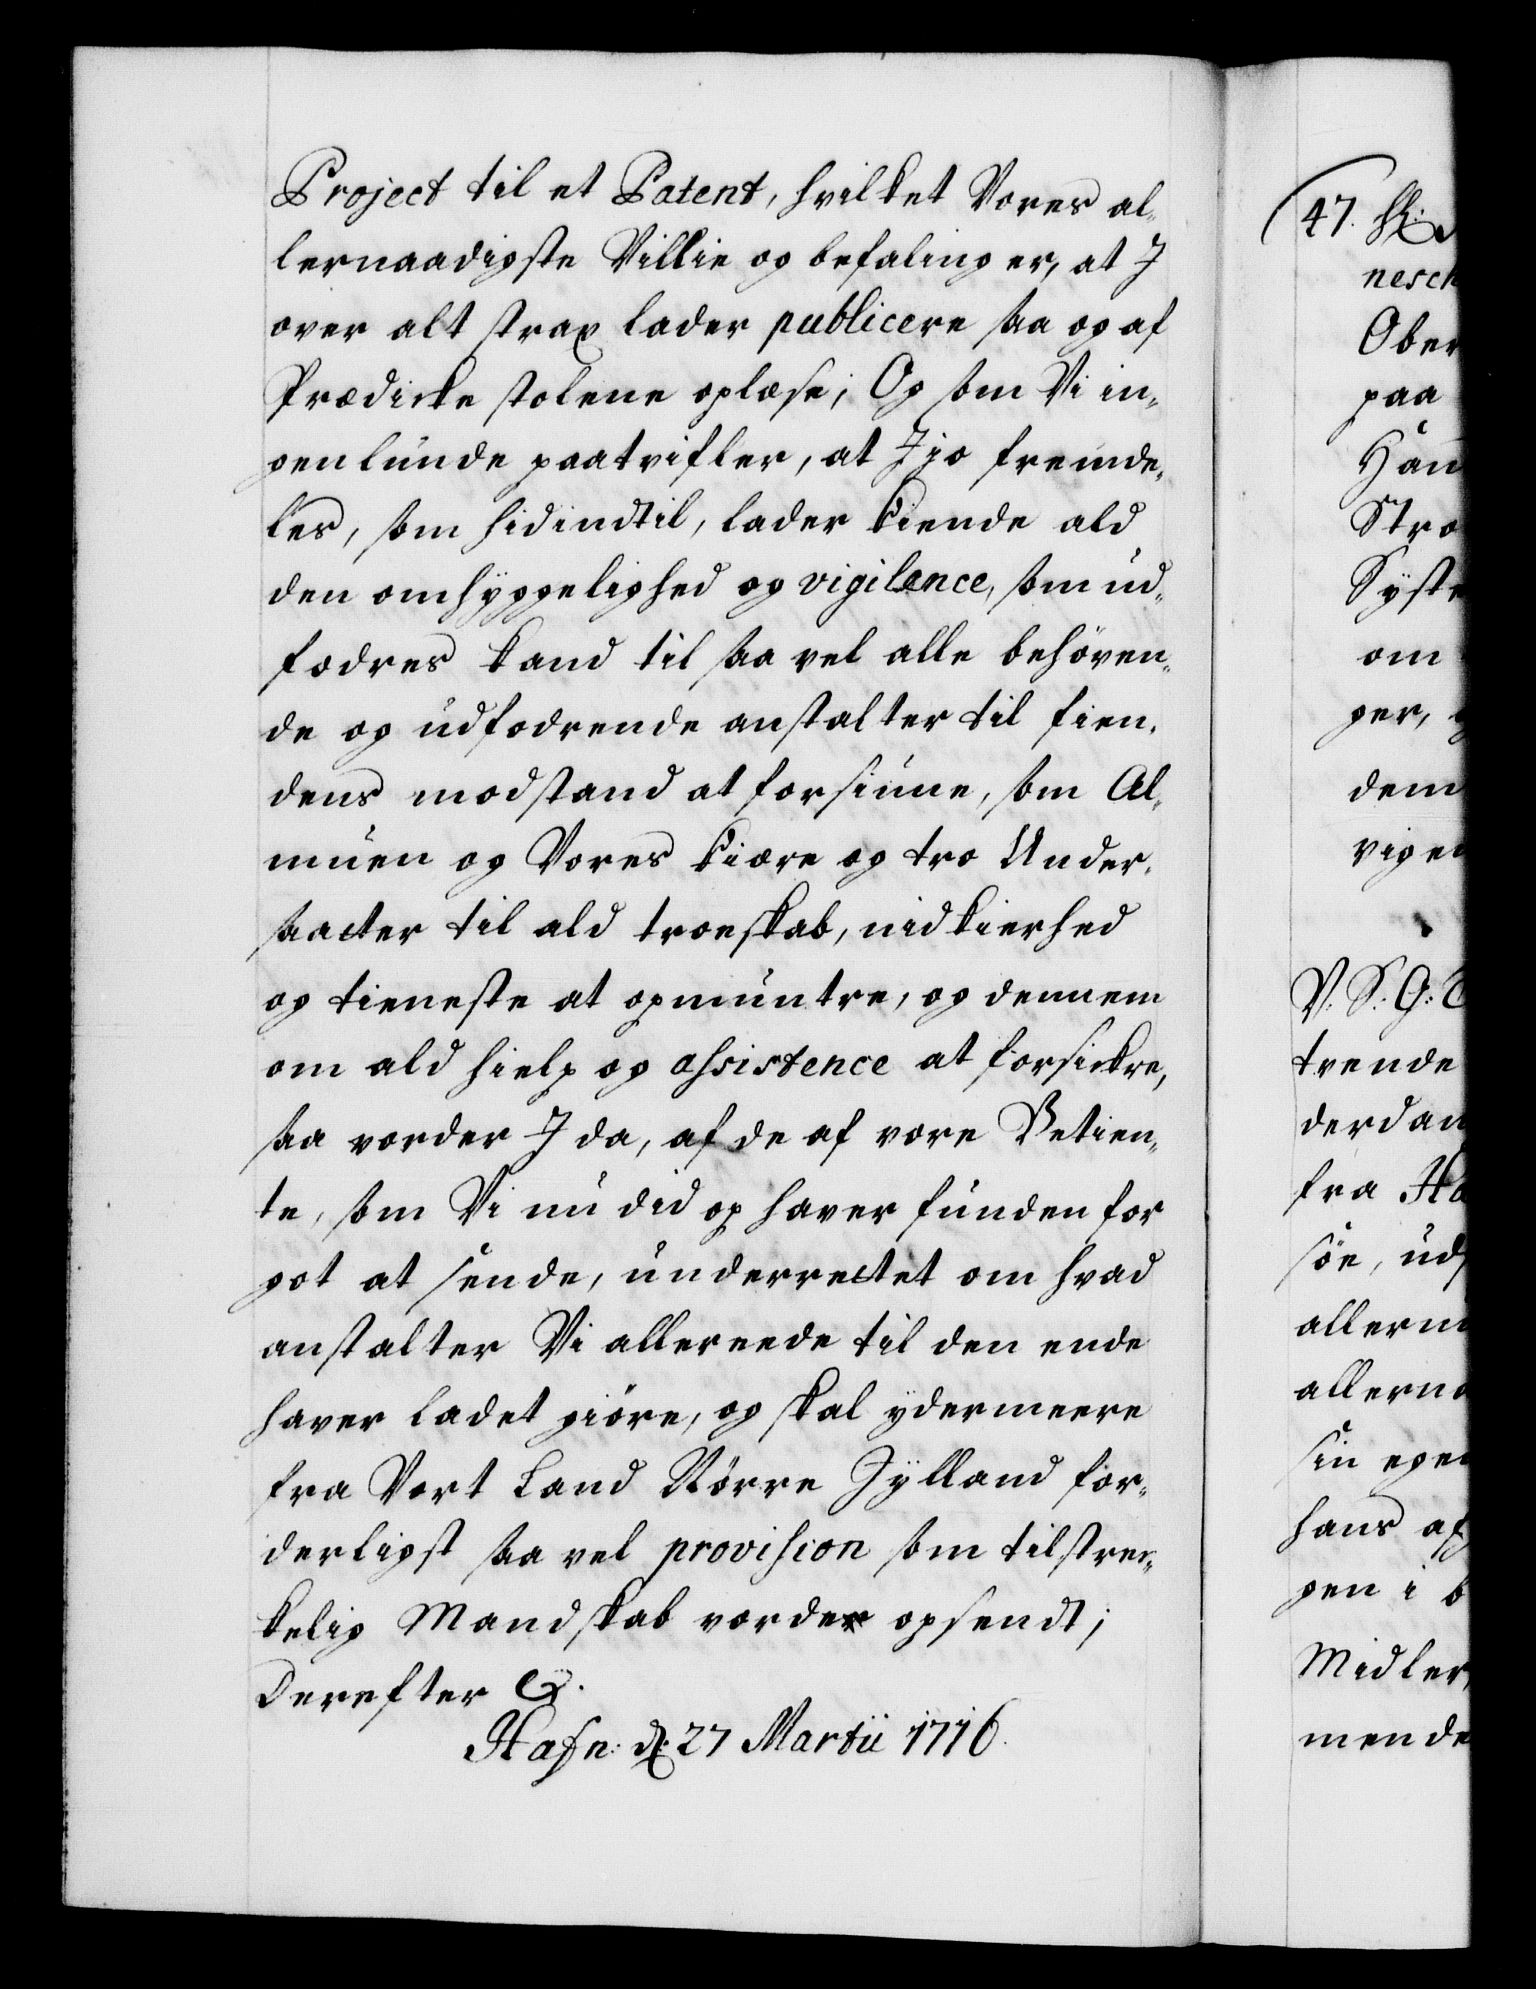 Project til et Patent, hvilket Vores al-
lernaadigste Villie og befaling er, at I
over alt strax lader publicere saa og af
Prædicke stolene oplæse; Og som Vi in-
genlunde paatvifler, at I jo fremde-
les, som hidindtil, lader kiende ald
den omhyggelighed og vigilence, som ud-
fodres kand til saa vel alle behöven-
de og udfodrende anstalter til fien-
dens modstand at forsiune, som Al-
muen og Vores kiære og tro Under-
saatter til ald troeskab, nidkierhed
og tieneste at opmuntre, og dennem
om ald hielp og assistence at forsickre,
saa vorder I da, af de af vore Betien-
te, som Vi nu did op haver funden for
got at sende, underrettet om hvad
anstalter Vi allereede til den ende
haver ladet giöre, og skal ydermeere
fra Vort Land Nörre Jylland for-
derligst saa vel provision som tilstrec-
kelig Mandskab vorde opsendt;
Derefter &.
Hafn: d: 27 Martii 1716.
47.
nesch
Ober
paa
Han
Stro
Syste
om
ger,
dem
vigen
V. S. G:
trende
derdan
fra Ha
söe, uds
allern
allerna
sin egen
hans af
gen i b
Midler
mende